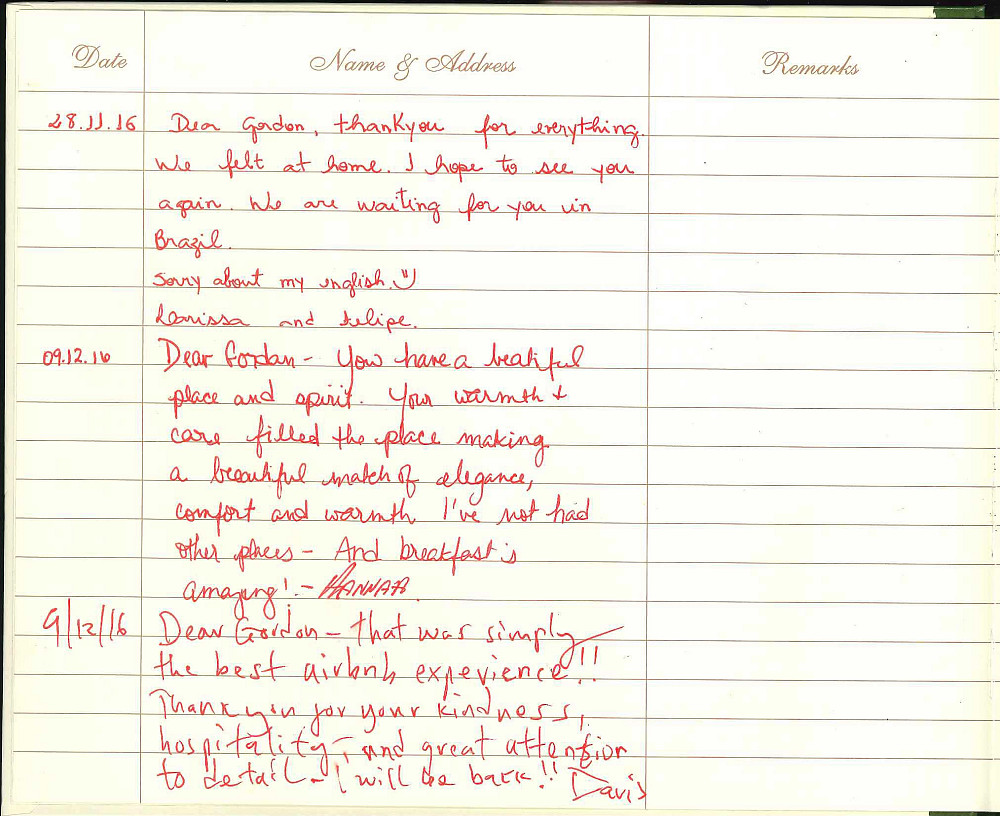 Date Name & Address Remarks
28.11.16 Dear Gordon, thankyou for everything.
We felt at home. I hope to see you
again. We are waiting for you in
Brazil.
Sorry about my english.
Larissa and Felipe.
09.12.16 Dear Gordan - You have a beatiful
place and spirit. Your warmth +
care filled the place making
a beautiful match of elegance,
comfort and warmth I've not had
other places - And breakfast is
amazing! - HANNAH
9/12/16 Dear Gordon - that was simply
the best airbnb experience!!
Thank you for your kindness,
hospitality, and great attention
to detail - I will be back!! Davis